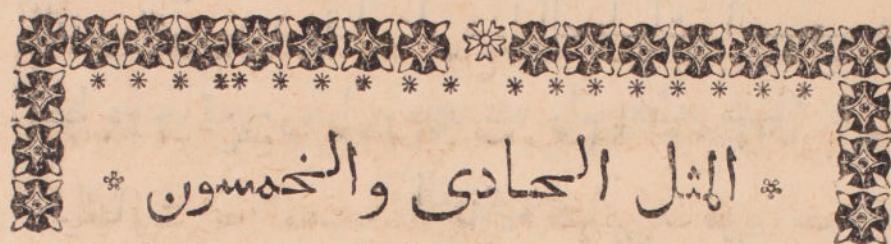 * المثل الحادى والخمسون *